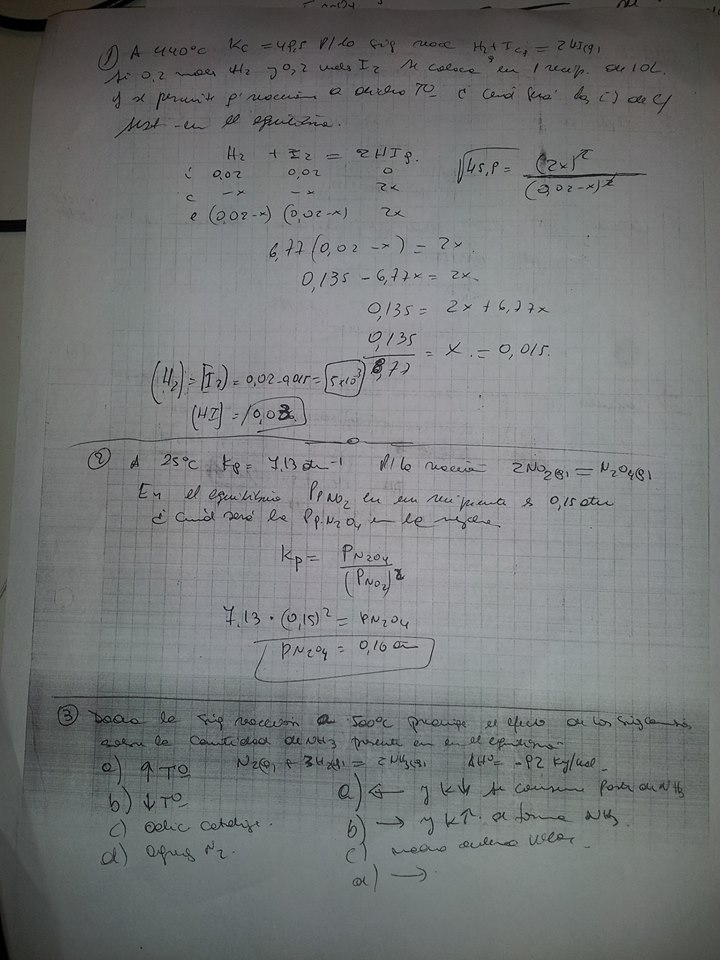 1) A 440°C Kc = 49,5 P/la sig reacc H2 + I2(g) = 2HI(g)
Si 0,2 moles H2 y 0,2 moles I2 se coloca en 1 recip. de 10L.
y se permite reacción a dicha Tº ¿ cuál será la [ ] de c/
sust en el equilibrio.
H2 + I2 = 2HI g.
i 0,02 0,02 0
c -x -x 2x
e (0,02-x) (0,02-x) 2x
√45,9 = (2x)²
(0,02-x)²
6,77 (0,02 - x) = 2x
0,135 - 6,77x = 2x
0,135 = 2x + 6,77x
0,135
8,77 = x = 0,015.
[H2] = [I2] = 0,02-0,015 = 5x10⁻³
[HI] = 0,03
2) A 25°C Kp = 7,13 atm⁻¹ P/la reacción 2NO2(g) = N2O4(g)
En el equilibrio Pp NO2 en un recipiente es 0,15 atm
¿ cuál será la Pp N2O4 en la
Kp = PN2O4
(PNO2)²
7,13 · (0,15)² = PN2O4
PN2O4 = 0,16 atm
3) Dada la sig reacción a 500°C el efecto de los sig cambios
sobre la cantidad de NH3 presente en en el equilibrio
N2(g) + 3H2(g) = 2NH3(g) ΔHº = -92 Kj/mol
a) ↑ Tº
b) ↓ Tº
c) adic cataliz.
d) agreg N2.
a) ← y K↓ se consume parte de NH3
b) → y K↑ se forma NH3.
c)
d) →